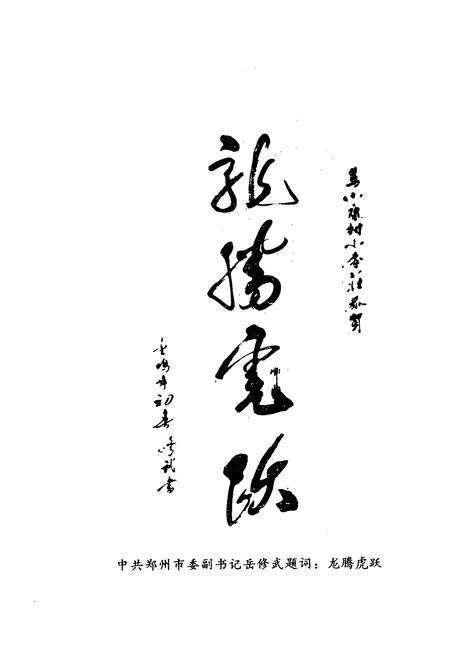 為小康村小李莊恭賀
龍騰虎跃
年初春 修武書
中共郑州市委副书记岳修武题词：龙腾虎跃